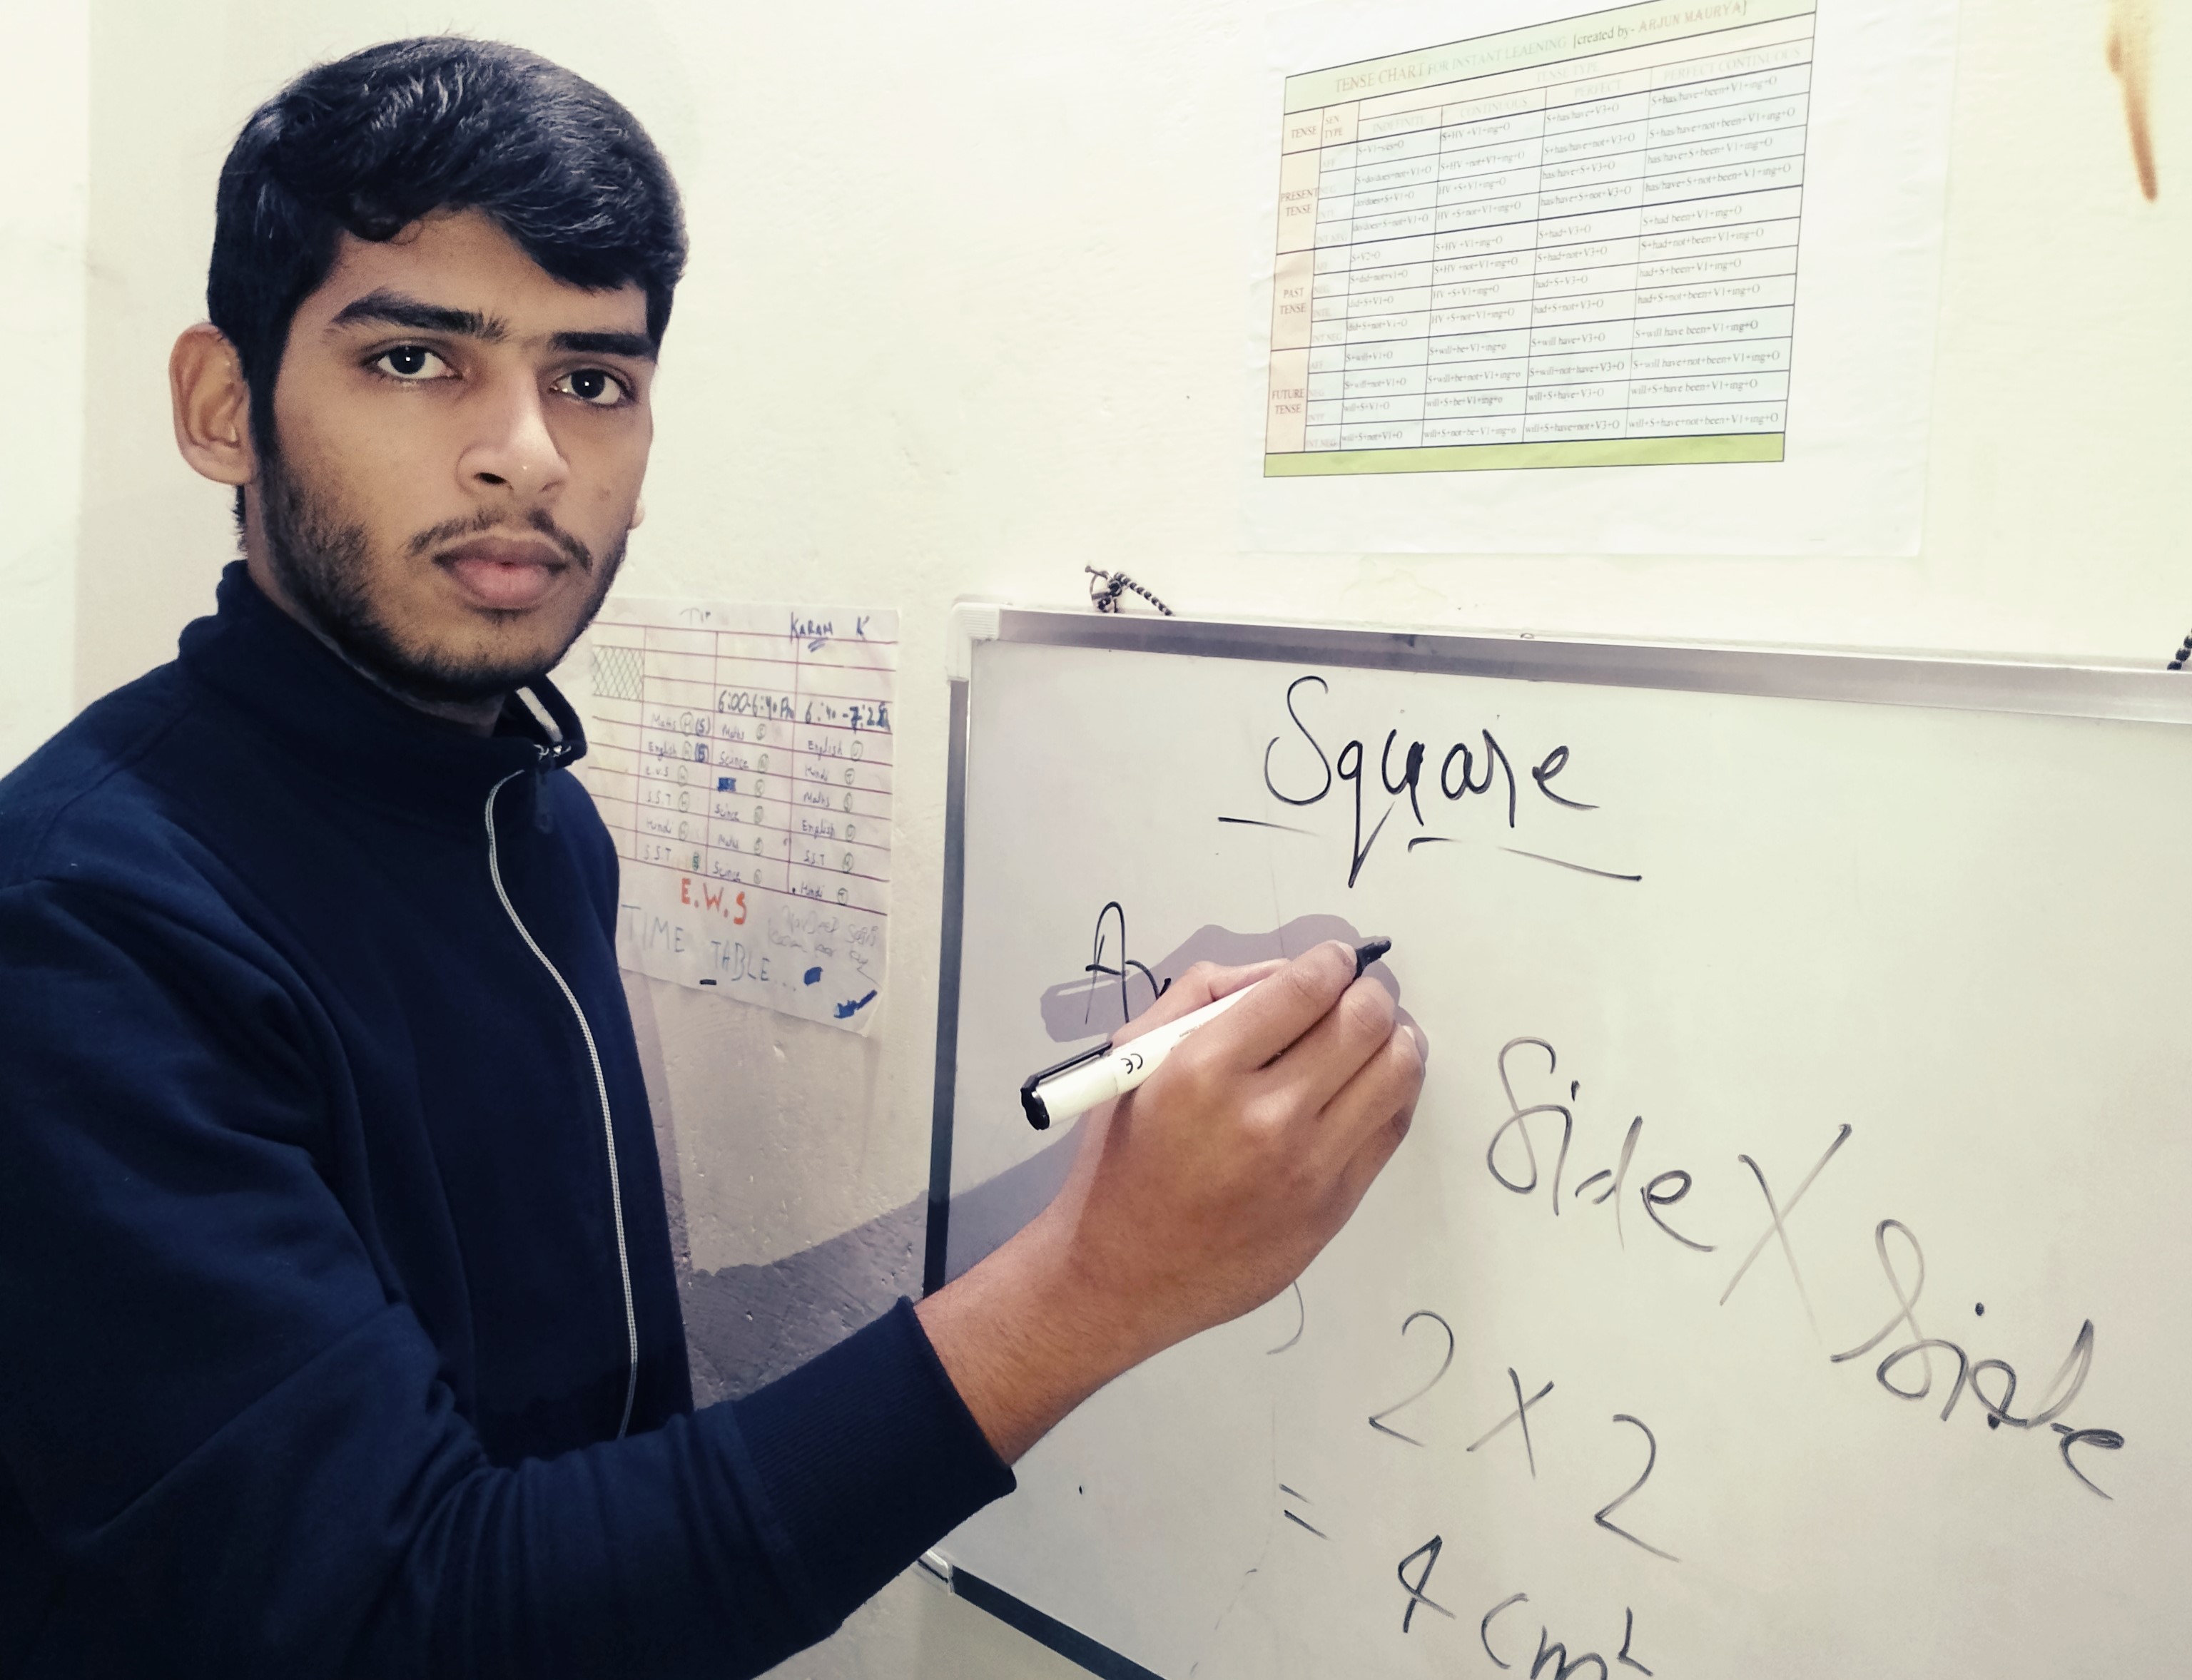 TENSE CHART FOR INSTANT LEAENING [created by- ARJUN MAURYA]
TENSE TYPE
TENSE SEN TYPE INDEFINITE CONTINUOUS PERFECT PERFECT CONTINUOUS
PRESENT TENSE
S+HV+V1+ing+O S+has/have+V3+O S+has/have+been+V1+ing+O
S+do/does+not+V1+O S+HV+not+V1+ing+O S+has/have+not+V3+O S+has/have+not+been+V1+ing+O
do/does+S+V1+O HV+S+V1+ing+O has/have+S+V3+O has/have+S+been+V1+ing+O
INT NEG do/does+S+not+V1+O HV+S+not+V1+ing+O has/have+S+not+V3+O has/have+S+not+been+V1+ing+O
PAST TENSE
S+V2+O S+HV+V1+ing+O S+had+V3+O S+had been+V1+ing+O
S+did+not+v1+O S+HV+not+V1+ing+O S+had+not+V3+O S+had+not+been+V1+ing+O
did+S+V1+O HV+S+V1+ing+O had+S+V3+O had+S+been+V1+ing+O
INT NEG did+S+not+V1+O HV+S+not+V1+ing+O had+S+not+V3+O had+S+not+been+V1+ing+O
FUTURE TENSE
S+will+V1+O S+will+be+V1+ing+o S+will have+V3+O S+will have been+V1+ing+O
S+will+not+V1+O S+will+be+not+V1+ing+o S+will+not+have+V3+O S+will have+not+been+V1+ing+O
will+S+V1+O will+S+be+V1+ing+o will+S+have+V3+O will+S+have been+V1+ing+O
INT NEG will+S+not+V1+O will+S+not+be+V1+ing+o will+S+have+not+V3+O will+S+have+not+been+V1+ing+O
KARAM K
6:00-6:40 Pm 6:40-7:2
Maths (S) Maths English
English Science Hindi
E.V.S Maths
S.S.T Science English
Hindi Maths S.S.T
S.S.T Science Hindi
E.W.S
TIME TABLE...
Square
A
CE
Side X Side
2 X 2
= 4 cm²